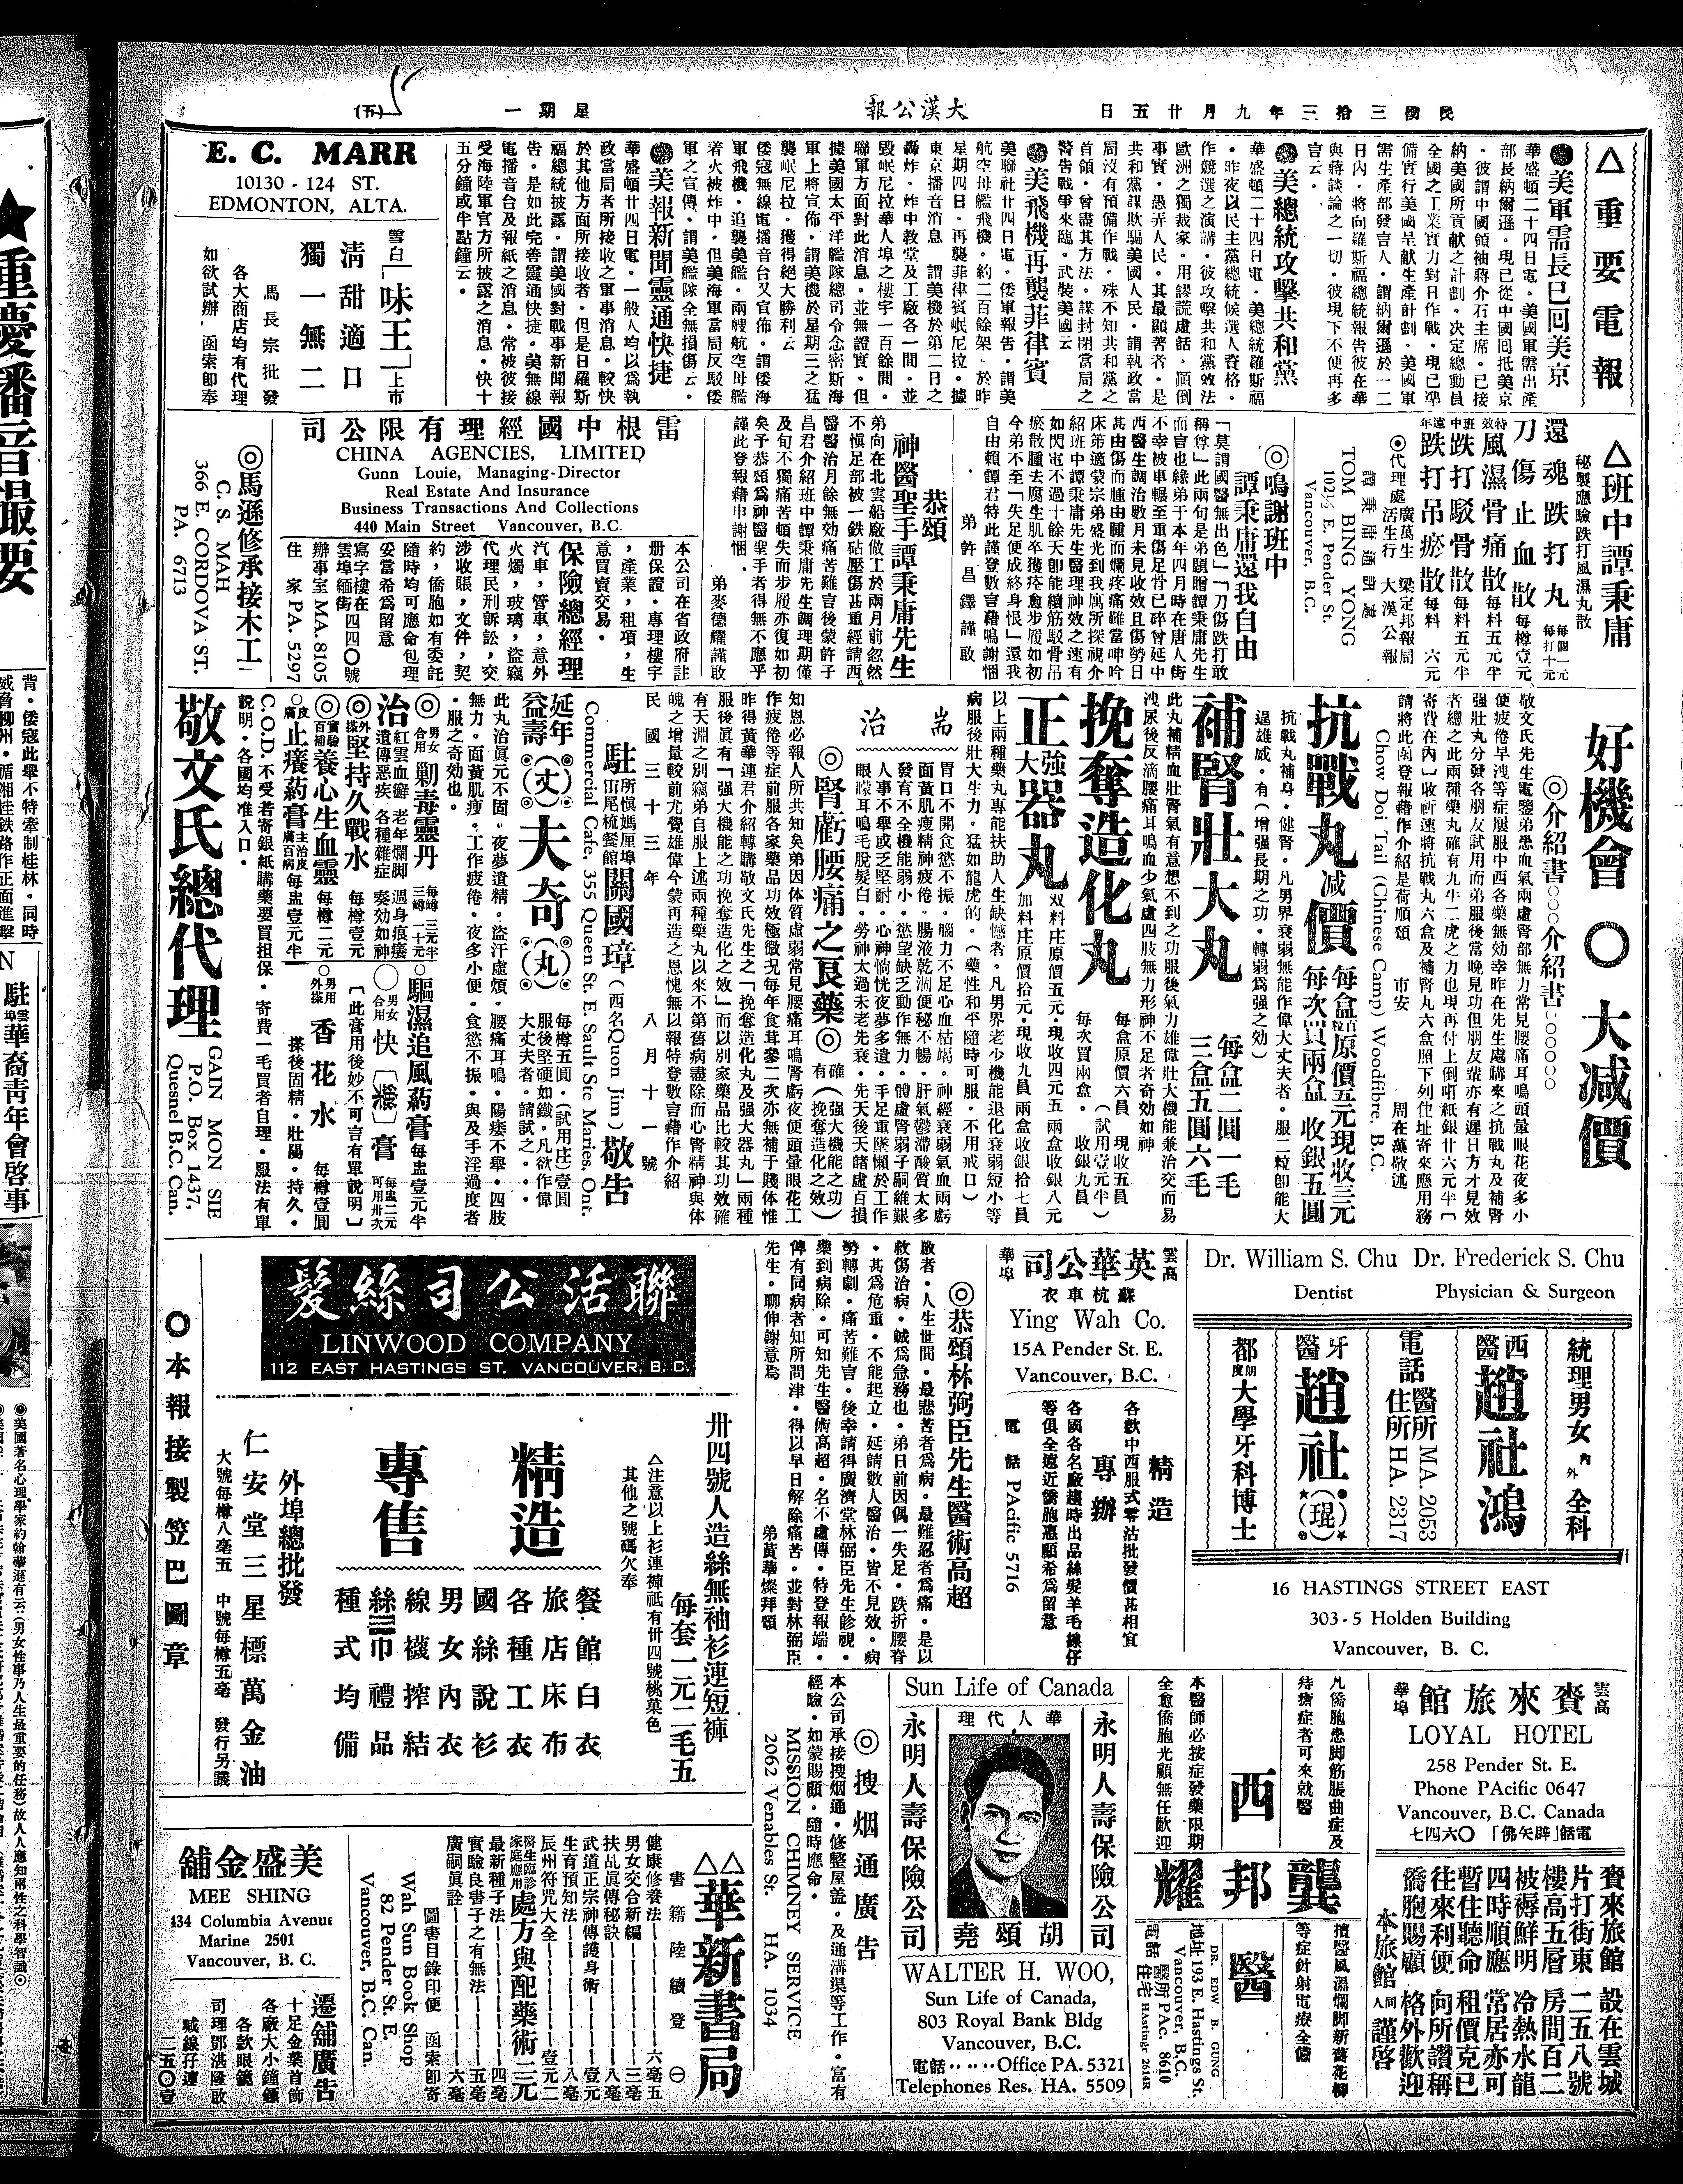 民國三拾三年九月廿五日
大漢公報
星期一
(五)
△重要電報
●美軍需長已回美京
華盛頓二十四日電。美國軍需出產
部長納爾遜。現已從中國回抵美京
。彼謂中國領袖蔣介石主席。已接
納美國所貢献之計劃。決定總動員
全國之工業實力對日作戰。現已準
備實行美國呈献生產計劃。美國軍
需生產部發言人。謂納爾遜於一二
日內。將向羅斯福總統報告彼在華
與蔣談論之一切。彼現下不便再多
言云。
●美總統攻擊共和黨
華盛頓二十四日電。美總統羅斯福
。昨夜以民主黨總統候選人資格。
作競選之演講。彼攻擊共和黨效法
歐洲之獨裁家。用謬謊虛話。顛倒
事實。愚弄人民。其最顯著者。是
共和黨謀欺騙美國人民。謂執政當
局沒有預備作戰。殊不知共和黨之
首領。曾盡其方法。謀封閉當局之
警告戰爭來臨。武裝美國云
●美飛機再襲菲律賓
美聯社廿四日電。倭軍報告。謂美
航空母艦飛機。約二百餘架。於昨
星期四日。再襲菲律賓岷尼拉。據
東京播音消息 謂美機於第二日之
轟炸。炸中教堂及工廠各一間。並
毀岷尼拉華人埠之樓宇一百餘間。
聯軍方面對此消息。並無證實。但
據美國太平洋艦隊總司令念密斯海
軍上將宣佈。謂美機於星期三之猛
襲岷尼拉。獲得絕大勝利云
倭寇無線電播音台又官佈。謂倭海
軍飛機。追襲美艦。兩艘航空母艦
着火被炸中。但美海軍當局反駁倭
軍之宣傳。謂美艦隊全無損傷云。
●美報新聞靈通快捷
華盛頓廿四日電。一般人均以爲執
政當局者所接收之軍事消息。較快
於其他方面所接收者。但是日羅斯
福總統披露。謂美國對戰事新聞報
告。是如此完善靈通快捷。美無線
電播音台及報紙之消息。常被彼接
受海陸軍官方所披露之消息。快十
五分鐘或半點鐘云。
E. C. MARR
10130 - 124 ST.
EDMONTON, ALTA.
雪白「味王」上市
清甜適口
獨一無二
馬長宗批發
各大商店均有代理
如欲試辦。函索卽奉
△班中譚秉庸
秘製應驗跌打風濕丸散
還魂跌打丸 每個一元 每打十元
刀傷止血散 每樽壹元
特效風濕骨痛散 每料五元半
班中跌打駁骨散 每料五元半
遠年跌打吊瘀散 每料六元
◎代理處廣萬生 梁定邦報局
活生行 大漢公報
譚秉庸通訊處
TOM BING YONG
102½ E. Pender St.
Vancouver, B.C.
◎鳴謝班中
譚秉庸還我自由
「莫謂國醫無出色」「刀傷跌打敢
稱尊」此兩句是弟題贈譚秉庸先生
而言也緣弟于本年四月時在唐人街
不幸被車輾至重傷足骨已碎曾延中
西醫生調治數月未見收效且傷勢日
甚由傷而腫由腫而爛疼痛難當呻吟
床笫適蒙宗弟盛光到我寓所探視介
紹班中譚秉庸先生醫理神效之速有
如閃電不過十餘天卽能續筋駁骨吊
瘀散腫去腐生肌卒獲痊愈步履如初
今弟不至「失足便成終身恨」還我
自由賴譚君特此謹登數言藉鳴謝悃
弟許昌鐸謹啟
恭頌
神醫聖手譚秉庸先生
弟向在北雲船廠做工於兩月前忽然
不愼足部被一鉄砧壓傷甚重經請西
醫醫治月餘無効痛苦難言後蒙許子
昌君介紹班中譚秉庸先生調理期僅
及旬不獨痛苦頓失而步履亦復如初
矣予恭頌爲神醫聖手者得無不應乎
謹此登報藉申謝悃。
弟麥德耀謹啟
雷根中國經理有限公司
CHINA AGENCIES, LIMITED
Gunn Louie, Managing-Director
Real Estate And Insurance
Business Transactions And Collections
440 Main Street Vancouver, B.C.
本公司在省政府註
册保證。專理樓宇
,產業,租項,生
意買賣交易。
保險總經理
汽車,管車,意外
火燭,玻璃,盜竊
代理民刑訴訟,交
涉收賬,文件,契
約,僑胞如有委託
隨時均可應命包理
妥當希爲留意
寫字樓在
雲埠緬街四四〇號
辦事室 MA. 8105
住家 PA. 5297
◎馬遜修承接木工
C. S. MAH
366 E. CORDOVA ST.
PA. 6713
好機會〇大减價
◎介紹書〇〇〇介紹書〇〇〇〇〇〇
敬文氏先生電鑒弟患血氣兩處腎部無力常見腰痛耳鳴頭暈眼花夜多小
便疲倦早洩等症屢服中西各藥無効幸昨在先生處購來之抗戰丸及補腎
强壯丸分發各朋友試用而弟服後當晚見功但朋友輩亦有遲日方才見效
者總之此兩種藥丸確有九牛二虎之力也現再付上倒咑紙銀廿六元半〔
寄費在內〕收祈速將抗戰丸六盒及補腎丸六盒照下列住址寄來應用務
請將此函登報藉作介紹是荷順頌 市安 周在藻敬述
Chow Doi Tail (Chinese Camp) Woodfibre. B.C.
抗戰丸减價
每盒百粒原價五元現收三元
每次買兩盒 收銀五圓
抗戰丸補身。健腎。凡男界衰弱無能作偉大丈夫者。服二粒卽能大
逞雄威。有(增强長期之功。轉弱爲强之効)
補腎壯大丸
每盒二圓一毛
三盒五圓六毛
此丸補精血壯腎氣有意想不到之功服後氣力雄偉壯大機能兼治交而易
洩尿後反滴腰痛耳鳴血少氣虛四肢無力形神不足者奇効如神
挽奪造化丸
每盒原價六員 現收五員
(試用壹元半)
每次買兩盒。收銀九員
正强大器丸
双料庄原價五元。現收四元五 兩盒收銀八元
加料庄原價拾元。現收九員 兩盒收銀拾七員
以上兩種藥丸專能扶助人生缺憾者。凡男界老少機能退化衰弱短小等
病服後壯大生力。猛如龍虎的。(藥性和平隨時可服。不用戒口)
耑治
胃口不開食慾不振。腦力不足心血枯竭。神經衰弱氣血兩虧
面黃肌瘦精神疲倦。腸液乾涸便秘不暢。肝氣鬱滯酸質太多
發育不全機能弱小。慾望缺乏動作無力。體虛腎弱子嗣維艱
人事不舉或乏堅耐。心神惝恍夜夢多遺。手足重墜懶於工作
眼矇耳鳴毛脫髮白。勞神太過未老先衰。先天後天諸虛百損
◎腎虧腰痛之良藥◎
確(强大機能之功)
有(挽奪造化之效)
知恩必報人所共知矣弟因体質虛弱常見腰痛耳鳴腎虧夜便頭暈眼花工
作疲倦等症前服各家藥品功效極微況每年食茸參二次亦無補于賤体惟
昨得黃華連君介紹轉購敬文氏先生之「挽奪造化丸及强大器丸」兩種
服後眞有「强大機能之功挽奪造化之效」而以別家藥品比較其功效確
有天淵之別竊弟自服上述兩種藥丸以來不第舊病盡除而心腎精神與体
魄之增量較前尤覺雄偉今蒙再造之恩愧無以報特登數言藉作介紹
民國三十三年 八月十一號
駐所愼媽厘埠㠪尾梳餐館關國璋(西名Quon Jim)敬告
Commercial Cafe, 355 Queen St. E. Sault Ste Maries. Ont.
延年益壽(丈)夫奇(丸)
每樽五圓。(試用庄)壹圓
服後堅硬如鐵。凡欲作偉
大丈夫者。請試之。
此丸治眞元不固。夜夢遺精。盜汗虛煩。腰痛耳鳴。陽痿不舉。四肢
無力。面黃肌瘦。工作疲倦。夜多小便。食慾不振。與及手淫過度者
。服之奇効也。
◎男女合用 剿毒靈丹 每樽三元半 三樽一十元
治紅雲血癬 老年爛脚 週身痕癢
遺傳惡疾 各種雜症 奏効如神
◎外搽 堅持久戰水 每樽壹元
◎實驗百補 養心生血靈 每樽二元
〇皮膚止癢葯膏 主治皮膚百病 每盅壹元半
〇驅濕追風葯膏 每盅壹元半
〇男女合用 快〔搽〕膏 每盅二元 可用卅次
〔此膏用後妙不可言有單說明〕
〇男用外搽 香花水 每樽壹圓
搽後固精。壯陽。持久。
C.O.D.不受若寄銀紙購藥要買担保。寄費一毛買者自理。服法有單
說明。各國均准入口。
敬文氏總代理
GAIN MON SIE
P.O. Box 1437,
Quesnel B.C. Can.
Dr. William S. Chu Dr. Frederick S. Chu
Dentist Physician & Surgeon
統理男女內外全科
西醫趙社鴻
電話 醫所 MA. 2053
住所 HA. 2317
牙醫趙社(琨)
都朗度大學牙科博士
16 HASTINGS STREET EAST
303-5 Holden Building
Vancouver, B. C.
雲高華埠
英華公司
蘇杭車衣
Ying Wah Co.
15A Pender St. E.
Vancouver, B.C.
精造
專辦
各欵中西服式零沽批發價甚相宜
各國各名廠趨時出品絲髮羊毛線仔
等俱全遠近僑胞惠顧希爲留意
電話 PAcific 5716
◎恭頌林弼臣先生醫術高超
啟者。人生世間。最悲苦者爲病。最難忍者爲痛。是以
救傷治病。誠爲急務也。弟日前因偶一失足。跌折腰脊
。甚爲危重。不能起立。延請數人醫治。皆不見效。病
勢轉劇。痛苦難言。後幸請得廣濟堂林弼臣先生診視。
藥到病除。可知先生醫術高超。名不虛傳。特登報端。
俾有同病者知所問津。得以早日解除痛苦。並對林弼臣
先生。聊伸謝意焉
弟黃華燦拜頌
聯活公司絲髮
LINWOOD COMPANY
112 EAST HASTINGS ST. VANCOUVER, B. C.
卅四號人造絲無袖衫連短褲
每套一元二毛五
△注意以上衫連褲祗有卅四號桃菓色
其他之號碼欠奉
精造
專售
餐館白衣
旅店床布
各種工衣
國絲說衫
男女內衣
線襪搾結
絲巾禮品
種式均備
外埠總批發
仁安堂三星標萬金油
大號每樽八毫五 中號每樽五毫 發行另議
〇本報接製笠巴圖章
雲高華埠
賚來旅館
LOYAL HOTEL
258 Pender St. E.
Phone PAcific 0647
Vancouver, B.C. Canada
電話「辟矢佛」〇六四七
賚來旅館 設在雲城
片打街東 二五八號
樓高五層 房間百二
被褥鮮明 冷熱水龍
四時順應 常居亦可
暫住聽命 租價克已
往來利便 向所讚稱
僑胞賜顧 格外歡迎
本旅館同人謹啓
凡僑胞患脚筋脹曲症及
痔瘡症者可來就醫
西醫
本醫師必按症發藥限期
全愈僑胞光顧無任歡迎
龔邦耀
擅醫風濕爛脚新舊花柳
等症針射電療全備
DR. EDW B. GUNG
地址 193 E. Hastings St.
Vancouver, B.C.
電話 醫所 PAc. 8610
住宅 HAstings 2614R
Sun Life of Canada
華人代理
永明人壽保險公司
永明人壽保險公司
胡頌堯
WALTER H. WOO,
Sun Life of Canada,
803 Royal Bank Bldg
Vancouver, B.C.
電話······Office PA. 5321
Telephones Res. HA. 5509
◎搜烟通廣告
本公司承接搜烟通。修整屋蓋。及通溝渠等工作。富有
經驗。如蒙賜顧。隨時應命。
MISSION CHIMNEY SERVICE
2062 Venables St. HA. 1034
△△華新書局
書籍陸續登㊀
健康修養法————六毫五
男女交合新編————三毫
扶乩眞傳秘訣————八毫
武道正宗神傳護身術——壹元
生育預知法————八毫
辰州符咒大全————壹元二
醫生臨診家庭應用 處方與配藥術三元
最新種子法————四毫
實驗良書子之有無法——五毫
廣嗣眞詮————六毫
圖書目錄印便 函索卽寄
Wah Sun Book Shop
82 Pender St. E.
Vancouver, B.C. Can.
美盛金舖
MEE SHING
434 Columbia Avenue
Marine 2501
Vancouver, B. C.
遷舖廣告
十足金葉首飾
各廠大小鐘鏢
各欵眼鏡
司理鄧湛隆啟
喊線孖連
二五〇壹
★重慶播音最要
背。倭寇此舉不特牽制桂林。同時
駐雲埠華裔靑年會啓事